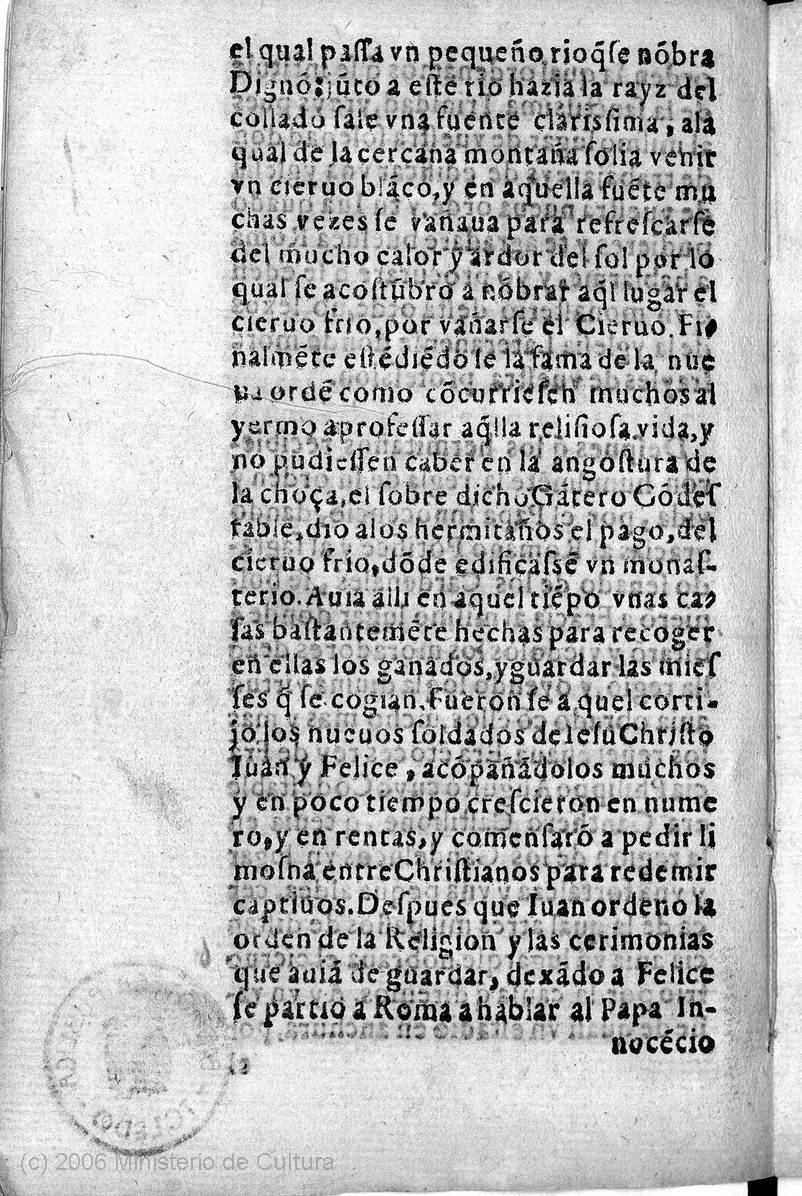 el qual passa vn pequeño rio q̃ se nõbra
Dignõ: jũto a este rio hazia la rayz del
collado sale vna fuente clarissima, ala
qual de la cercana montaña solia venir
vn cieruo blãco, y en aquella fuẽte mu
chas vezes se vañaua para refrescarse
del mucho calor y ardor del sol por lo
qual se acostũbro a nõbrar aq̃l lugar el
cieruo frio, por vañarse el Cieruo. Fi-
nalmẽte estẽdiẽdo se la fama de la nue
ua ordẽ como cõcurriesen muchos al
yermo a professar aq̃lla relisiosa vida, y
no pudiessen caber en la angostura de
la choça, el sobre dicho Gãtero Cõdes
table, dio a los hermitaños el pago, del
cieruo frio, dõde edificassẽ vn monas-
terio. Auia alli en aquel tiẽpo vnas ca-
sas bastantemẽte hechas para recoger
en ellas los ganados, y guardar las mies
ses q̃ se cogian. Fueron se a quel corti-
jo los nueuos soldados de Iesu Christo
Iuan y Felice, acõpañãdolos muchos
y en poco tiempo crescieron en nume
ro, y en rentas, y comensarõ a pedir li
mosna entre Christianos para redemir
captiuos. Despues que Iuan ordeno la
orden de la Religion y las cerimonias
que auiã de guardar, dexãdo a Felice
se partio a Roma a hablar al Papa In-
nocẽcio
(c) 2006 Ministerio de Cultura